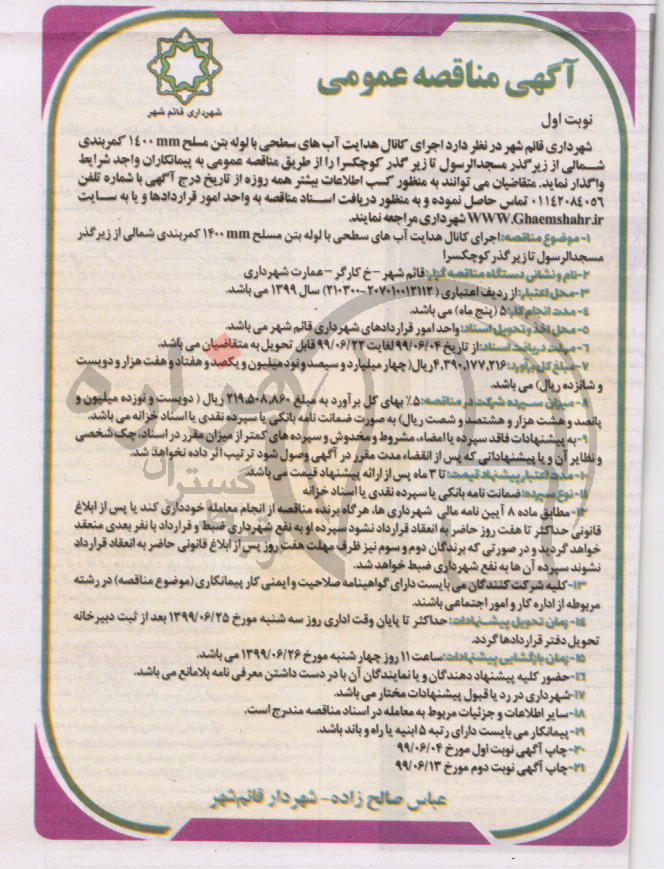 آگهی مناقصه عمومی
شهرداری قائم شهر
نوبت اول
شهرداری قائم شهر در نظر دارد اجرای کانال هدایت آب های سطحی با لوله بتن مسلح ۱۴۰۰ mm کمربندی
شمالی از زیر گذر مسجدالرسول تا زیر گذر کوچکسرا را از طریق مناقصه عمومی به پیمانکاران واجد شرایط
واگذار نماید. متقاضیان می توانند به منظور کسب اطلاعات بیشتر همه روزه از تاریخ درج آگهی با شماره تلفن
۰۱۱۴۲۰۸۴۰۵۶ تماس حاصل نموده و به منظور دریافت اسناد مناقصه به واحد امور قراردادها و یا به سایت
WWW.Ghaemshahr.ir شهرداری مراجعه نمایند.
۱- موضوع مناقصه: اجرای کانال هدایت آب های سطحی با لوله بتن مسلح ۱۴۰۰ mm کمربندی شمالی از زیرگذر
مسجدالرسول تا زیر گذر کوچکسرا
۲-نام و نشانی دستگاه مناقصه گزار: قائم شهر -خ کارگر -عمارت شهرداری
۳-محل اعتبار: از ردیف اعتباری (۲۰۷۰۱۰۰۱۳۱۱۲-۲۱۰۳۰۰) سال ۱۳۹۹ می باشد.
۴- مدت انجام کار: ۵ (پنج ماه) می باشد.
۵- محل اخذ و تحویل اسناد: واحد امور قراردادهای شهرداری قائم شهر می باشد.
۶- مهلت دریافت اسناد: از تاریخ ۹۹/۰۶/۰۴ لغایت ۹۹/۰۶/۲۲ قابل تحویل به متقاضیان می باشد.
۷-مبلغ کل برآورد: ۴,۳۹۰,۱۷۷,۲۱۶ ریال (چهار میلیارد و سیصد و نود میلیون و یکصد و هفتاد و هفت هزار و دویست
و شانزده ریال) می باشد.
۸- میزان سپرده شرکت در مناقصه: ۵٪ بهای کل برآورد به مبلغ ۲۱۹,۵۰۸,۸۶۰ ریال ( دویست و نوزده میلیون و
پانصد و هشت هزار و هشتصد و شصت ریال) به صورت ضمانت نامه بانکی یا سپرده نقدی یا اسناد خزانه می باشد.
۹- به پیشنهادات فاقد سپرده یا امضاء، مشروط و مخدوش و سپرده های کمتر از میزان مقرر در اسناد، چک شخصی
و نظایر آن و یا پیشنهاداتی که پس از انقضاء مدت مقرر در آگهی وصول شود ترتیب اثر داده نخواهد شد.
۱۰- مدت اعتبار پیشنهاد قیمت: تا ۳ ماه پس از ارائه پیشنهاد قیمت می باشد.
۱۱- نوع سپرده: ضمانت نامه بانکی یا سپرده نقدی یا اسناد خزانه
۱۲- مطابق ماده ۸ آیین نامه مالی شهرداری ها، هرگاه برنده مناقصه از انجام معامله خودداری کند یا پس از ابلاغ
قانونی حداکثر تا هفت روز حاضر به انعقاد قرارداد نشود سپرده او به نفع شهرداری ضبط و قرارداد با نفر بعدی منعقد
خواهد گردید و در صورتی که برندگان دوم و سوم نیز ظرف مهلت هفت روز پس از ابلاغ قانونی حاضر به انعقاد قرارداد
نشوند سپرده آن ها به نفع شهرداری ضبط خواهد شد.
۱۳- کلیه شرکت کنندگان می بایست دارای گواهینامه صلاحیت و ایمنی کار پیمانکاری (موضوع مناقصه) در رشته
مربوطه از اداره کار و امور اجتماعی باشند.
۱۴- زمان تحویل پیشنهادات: حداکثر تا پایان وقت اداری روز سه شنبه مورخ ۱۳۹۹/۰۶/۲۵ بعد از ثبت دبیرخانه
تحویل دفتر قراردادها گردد.
۱۵- زمان بازگشایی پیشنهادات: ساعت ۱۱ روز چهار شنبه مورخ ۱۳۹۹/۰۶/۲۶ می باشد.
۱۶- حضور کلیه پیشنهاد دهندگان و یا نمایندگان آن با در دست داشتن معرفی نامه بلامانع می باشد.
۱۷- شهرداری در رد یا قبول پیشنهادات مختار می باشد.
۱۸- سایر اطلاعات و جزئیات مربوط به معامله در اسناد مناقصه مندرج است.
۱۹- پیمانکار می بایست دارای رتبه ۵ ابنیه یا راه و باند باشد.
۲۰- چاپ آگهی نوبت اول مورخ ۹۹/۰۶/۰۴
۲۱- چاپ آگهی نوبت دوم مورخ ۹۹/۰۶/۱۳
عباس صالح زاده - شهردار قائم‌شهر
هزاره
گستران